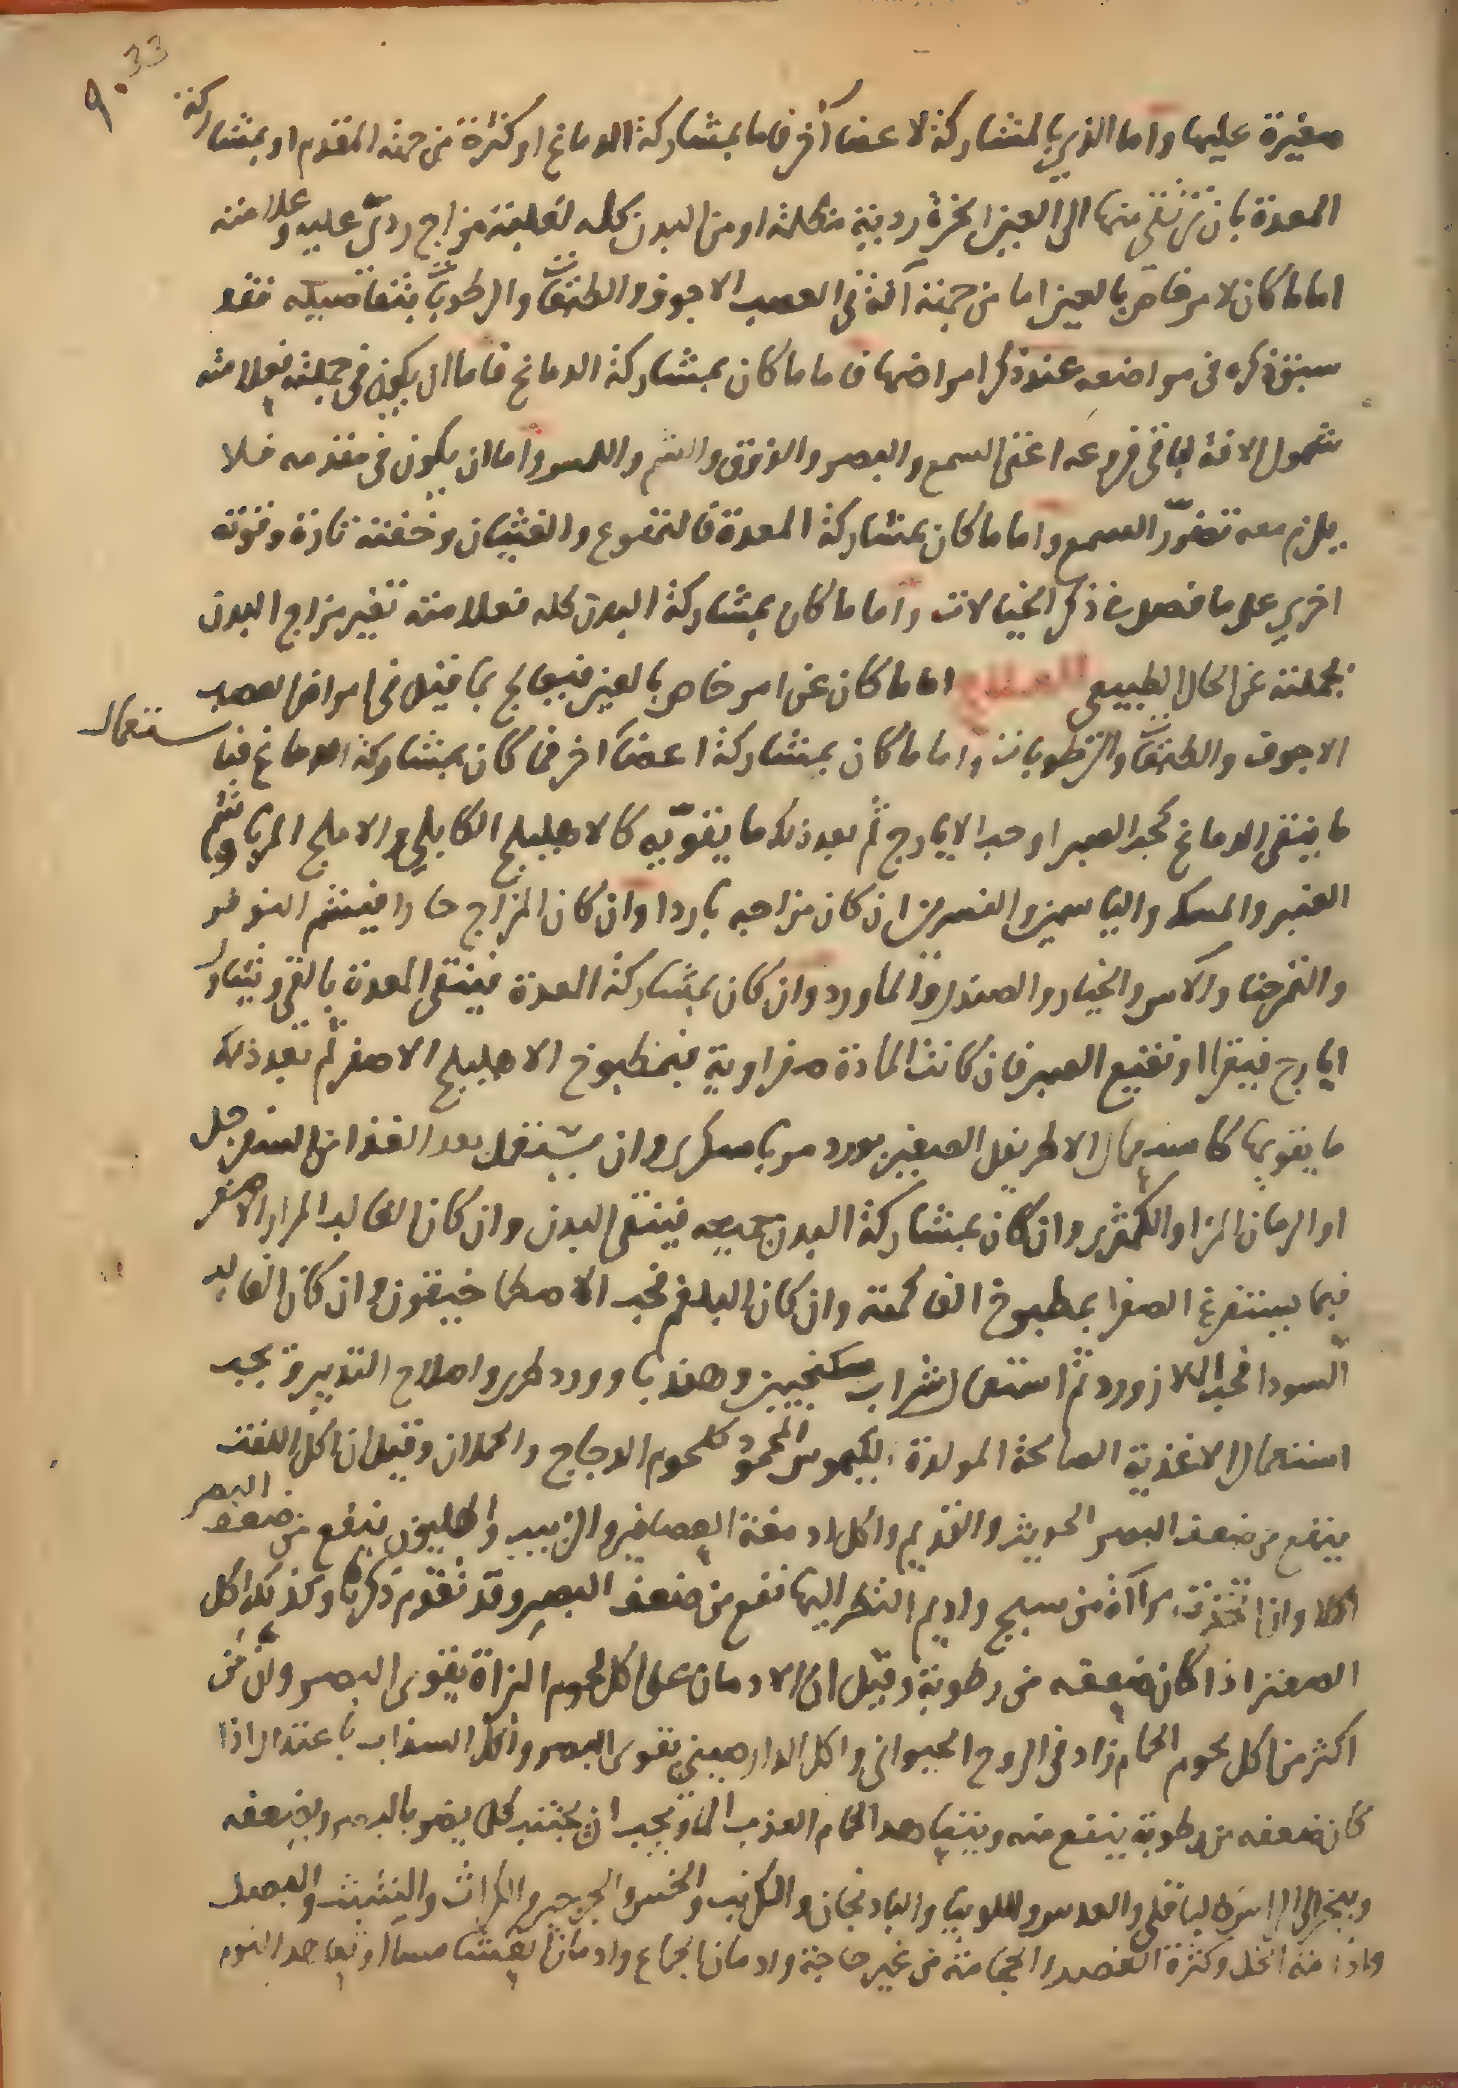 33
٩٠
صغيرة عليها واما الذي بالمشاركة لاعضا آخر فاما بمشاركة الدماغ او كثرة من جهة المقدم او بمشاركة
المعدة بان ترتقي منها الى العين ابخرة ردية متخللة او من البدن كله لغلبة مزاج ردي عليه وعلامته
اما ما كان لامر خاص بالعين اما من جهة آفة في العصب الاجوف والطبقات والرطوبات بتفاصيله فقد
سبق ذكره في مواضعه عند ذكر امراضها فاما ما كان بمشاركة الدماغ فاما ان يكون في جملته فعلامته
شمول الافة لباقي فروعه اعني السمع والبصر والذوق والشم واللمس واما ان يكون في مقدمه فلا
يلزم معه تضرر السمع واما ما كان بمشاركة المعدة فالتهوع والغثيان وخفته تارة وقوته
اخري على ما فصل في ذكر الخيالات واما ما كان بمشاركة البدن كله فعلامته تغير مزاج البدن
بجملته عن الحال الطبيعي العلاج اما ما كان عن امر خاص بالعين فيعالج بما قيل في امراض العصب
الاجوف والطبقات والرطوبات واما ما كان بمشاركة اعضا اخر فما كان بمشاركة الدماغ فباستعمال
ما ينقي الدماغ كحب الصبر او حب الايارج ثم بعد ذلك ما يقويه كالاهليلج الكابلي والاملج المربا وشم
العنبر والمسك والياسمين والنسرين ان كان مزاجه باردا وان كان المزاج حارا فيشم النوفر
والتمرحنا والآس والخيار والصندل والماورد وان كان بمشاركة المعدة فينقي المعدة بالقي وشيار
ايارج فيقرا او نقيع الصبر فان كانت المادة صفراوية فبمطبوخ الاهليلج الاصفر ثم بعد ذلك
ما يقويها كاستعمال الاطريفل الصغير بورد مربا سكري وان يستعمل بعد الغذا من السفرجل
او الرمان المز او الكمثري وان كان بمشاركة البدن جميعه فينقي البدن وان كان الغالب المرار الاصفر
فبما يستفرغ الصفرا بمطبوخ الفاكهة وان كان البلغم فحب الاصطماخيقون وان كان الغالب
السودا فحب اللازورد ثم استعمال شراب سكنجبين وهندبا وورد طري واصلاح التدبير ويجب
استعمال الاغذية الصالحة المولدة للكيموس المحمود كلحوم الدجاج والحملان وقيل ان اكل اللفت
ينفع من ضعف البصر الحديث والقديم واكل ادمغة العصافير والزبيب والهليون ينفع من ضعف البصر
اكلا واذا اتخذت مرآة من سبج واديم النظر اليها نفع من ضعف البصر وقد تقدم ذكرها وكذلك اكل
الصعتر اذا كان ضعفه من رطوبة وقيل ان الادمان على اكل لحوم البزاة يقوى البصر وان من
اكثر من اكل لحوم الحمام زاد في الروح الحيواني واكل الدارصيني يقوى البصر واكل السذاب باعتدال اذا
كان ضعفه من رطوبة ينفع منه ويتعاهد الحمام العذب الما ويجب ان يجتنب كلما يضر بالبصر ويضعفه
ويبخر الى الراس كالباقلي والعدس واللوبيا والبادنجان والكرنب والخس والجرجير والكراث والشبث والبصل
وادامة الخل وكثرة الفصد والحجامة من غير حاجة وادمان الجماع وادمان العشا مسآ وتعاهد النوم